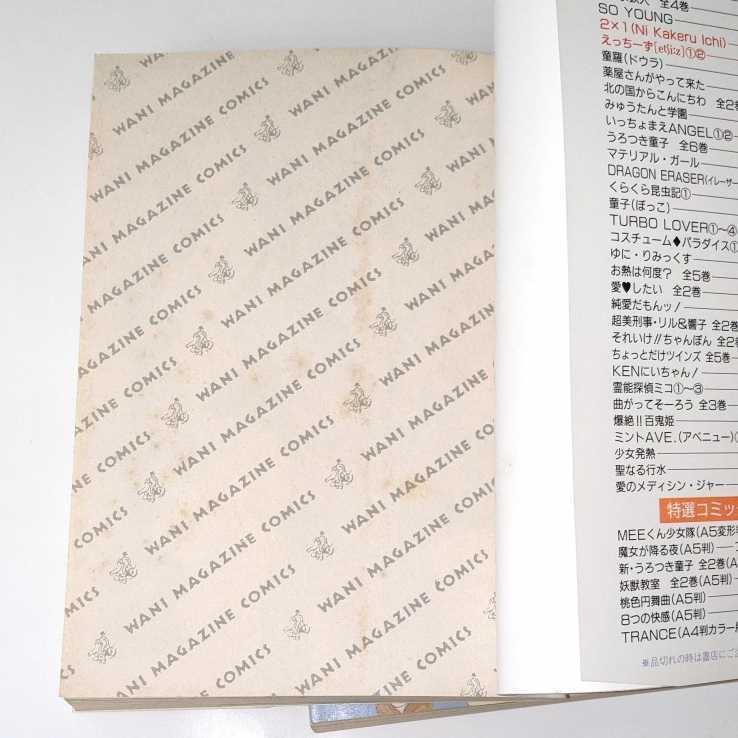 WANI MAGAZINE COMICS
WANI MAGAZINE COMICS
WANI MAGAZINE COMICS
WANI MAGAZINE COMICS
WANI MAGAZINE COMICS
WANI MAGAZINE COMICS
WANI MAGAZINE COMICS
全4巻
SO YOUNG
2×1(Ni Kakeru Ichi)
えっちーず[etʃi:z]①②
童羅(ドウラ)
薬屋さんがやって来た
北の国からこんにちわ 全2巻
みゅうたんと学園
いっちょまえANGEL①②
うろつき童子 全6巻
マテリアル・ガール
DRAGON ERASER(イレーザー
くらくら昆虫記①
童子(ぼっこ)
TURBO LOVER①〜④
コスチューム♦パラダイス①
ゆに・りみっくす
お熱は何度? 全5巻
愛♥したい 全2巻
純愛だもんッ!
超美刑事・リル&響子 全2巻
それいけ!!ちゃんぽん 全2巻
ちょっとだけツインズ 全5巻
KENにいちゃん!
霊能探偵ミコ①〜③
曲がってそーろう 全3巻
爆絶!!百鬼姫
ミントAVE.(アベニュー)
少女発熱
聖なる行水
愛のメディシン・ジャー
特選コミッ
MEEくん少女隊(A5変形
魔女が降る夜(A5判)
新・うろつき童子 全2巻(A
妖獣教室 全2巻(A5判)
桃色円舞曲(A5判)
8つの快感(A5判)
TRANCE(A4判カラー
※品切れの時は書店にご